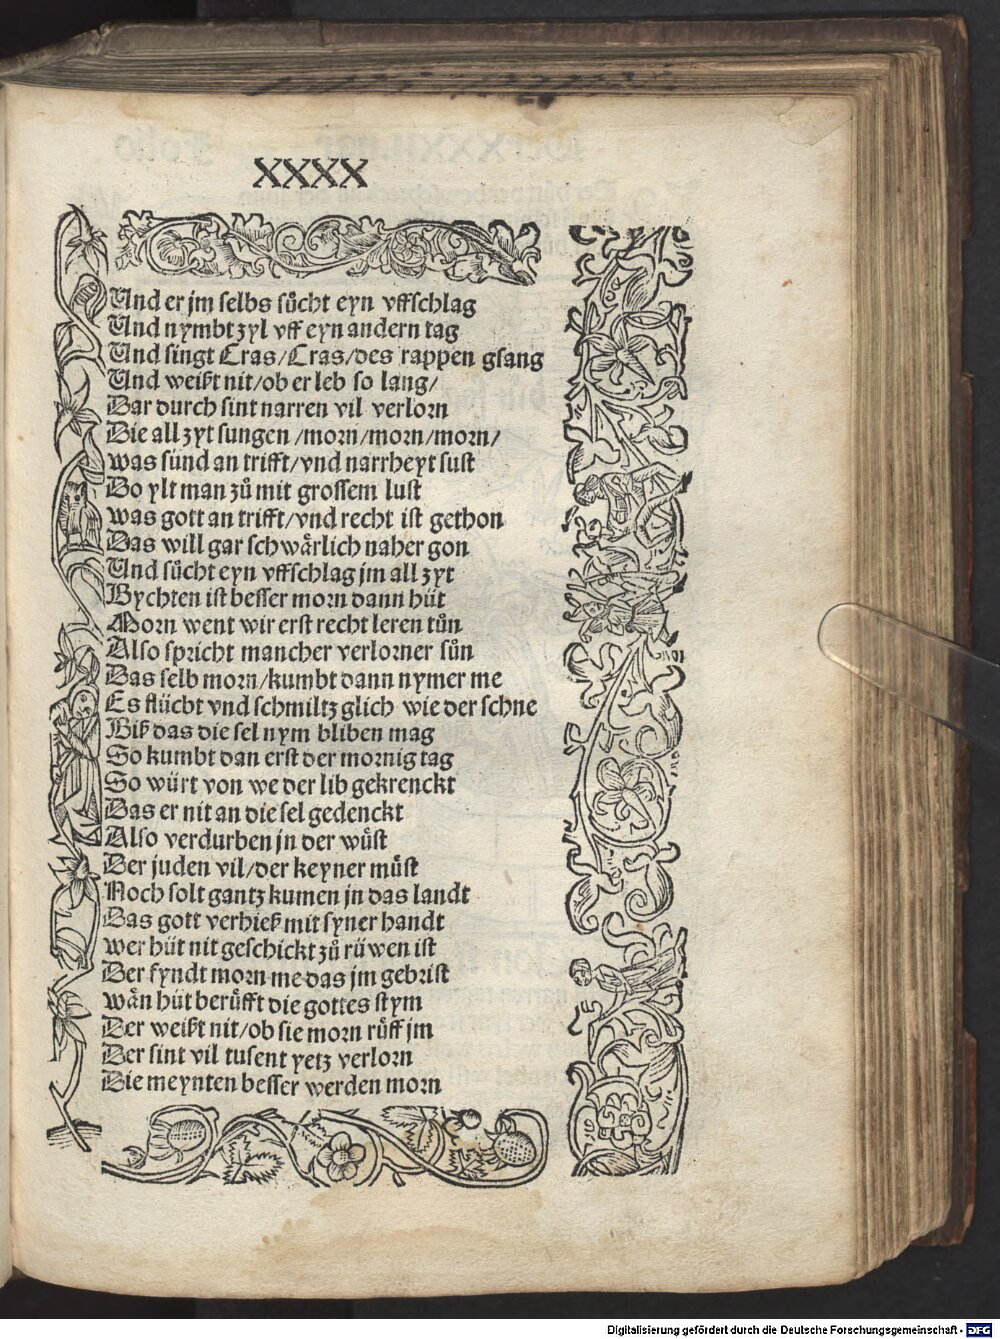 XXXX
Und er jm selbs sůcht eyn vffschlag
Und nymbt zyl vff eyn andern tag
Und singt Cras/Cras/des rappen gsang
Und weißt nit/ob er leb so lang/
Dar durch sint narren vil verlorn
Die all zyt sungen /morn/morn/morn/
was sünd an trifft/vnd narrheyt sust
Do ylt man zů mit grossem lust
was gott an trifft/vnd recht ist gethon
Das will gar schwårlich naher gon
Und sůcht eyn vffschlag jm all zyt
Bychten ist besser morn dann hüt
Morn went wir erst recht leren tůn
Also spricht mancher verlorner sůn
Das selb morn/kumbt dann nymer me
Es flücht vnd schmiltz glich wie der schne
Biß das die sel nym bliben mag
So kumbt dan erst der mornig tag
So würt von we der lib gekrenckt
Das er nit an die sel gedenckt
Also verdurben jn der wůst
Der juden vil/der keyner můst
Noch solt gantz kumen jn das landt
Das gott verhieß mit syner handt
wer hüt nit geschickt zů rüwen ist
Der fyndt morn me das jm gebrist
wån hüt berůfft die gottes stym
Der weißt nit/ob sie morn růff jm
Der sint vil tusent yetz verlorn
Die meynten besser werden morn
Digitalisierung gefördert durch die Deutsche Forschungsgemeinschaft - DFG